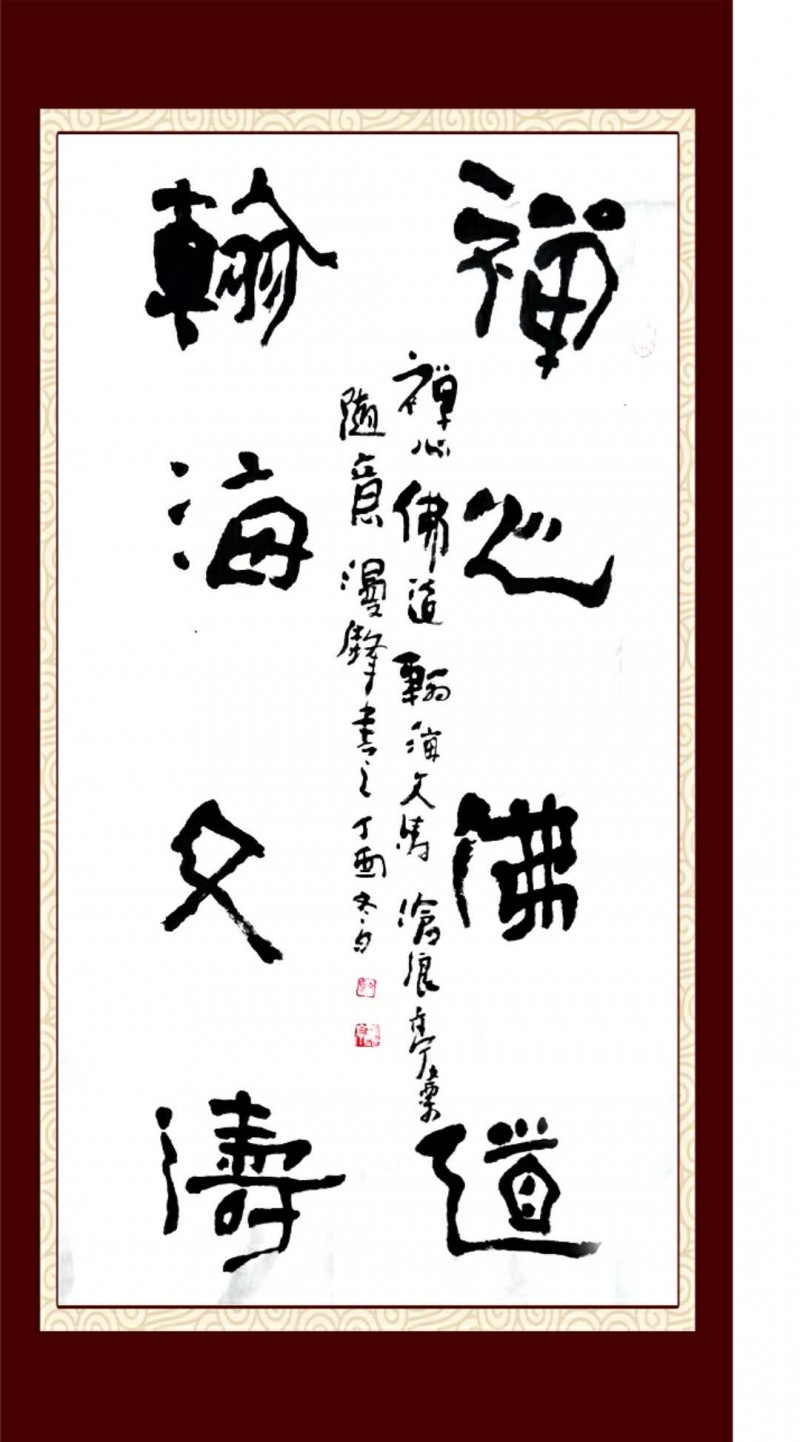 禪心佛道
翰海文濤
禪心佛道翰海文濤滄浪
隨意漫鋒書之丁酉冬月